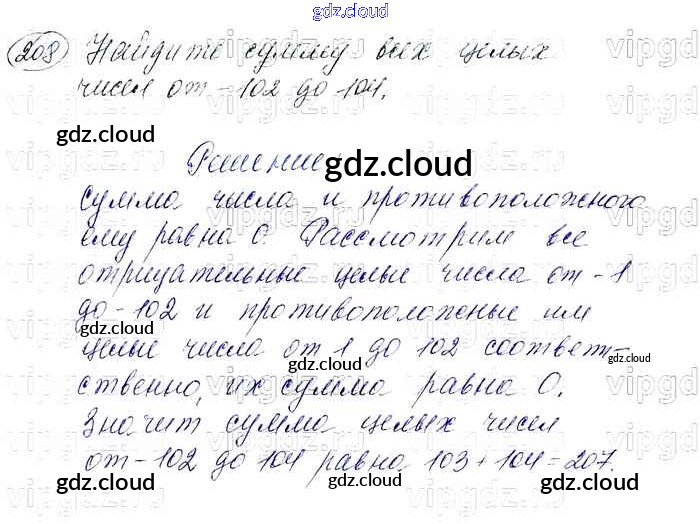 gdz.cloud
208 Найдите сумму всех целых
чисел от -102 до 104.
gdz.cloud
Решение:
gdz.cloud
сумма числа и противоположного
ему равна 0. Рассмотрим все
отрицательные целые числа от -1
до -102 и противоположные им
gdz.cloud gdz.cloud
целые числа от 1 до 102 соответ-
gdz.cloud
ственно, их сумма равна 0.
gdz.cloud
Значит сумма целых чисел
от -102 до 104 равна 103+104=207.
gdz.cloud gdz.cloud gdz.cloud